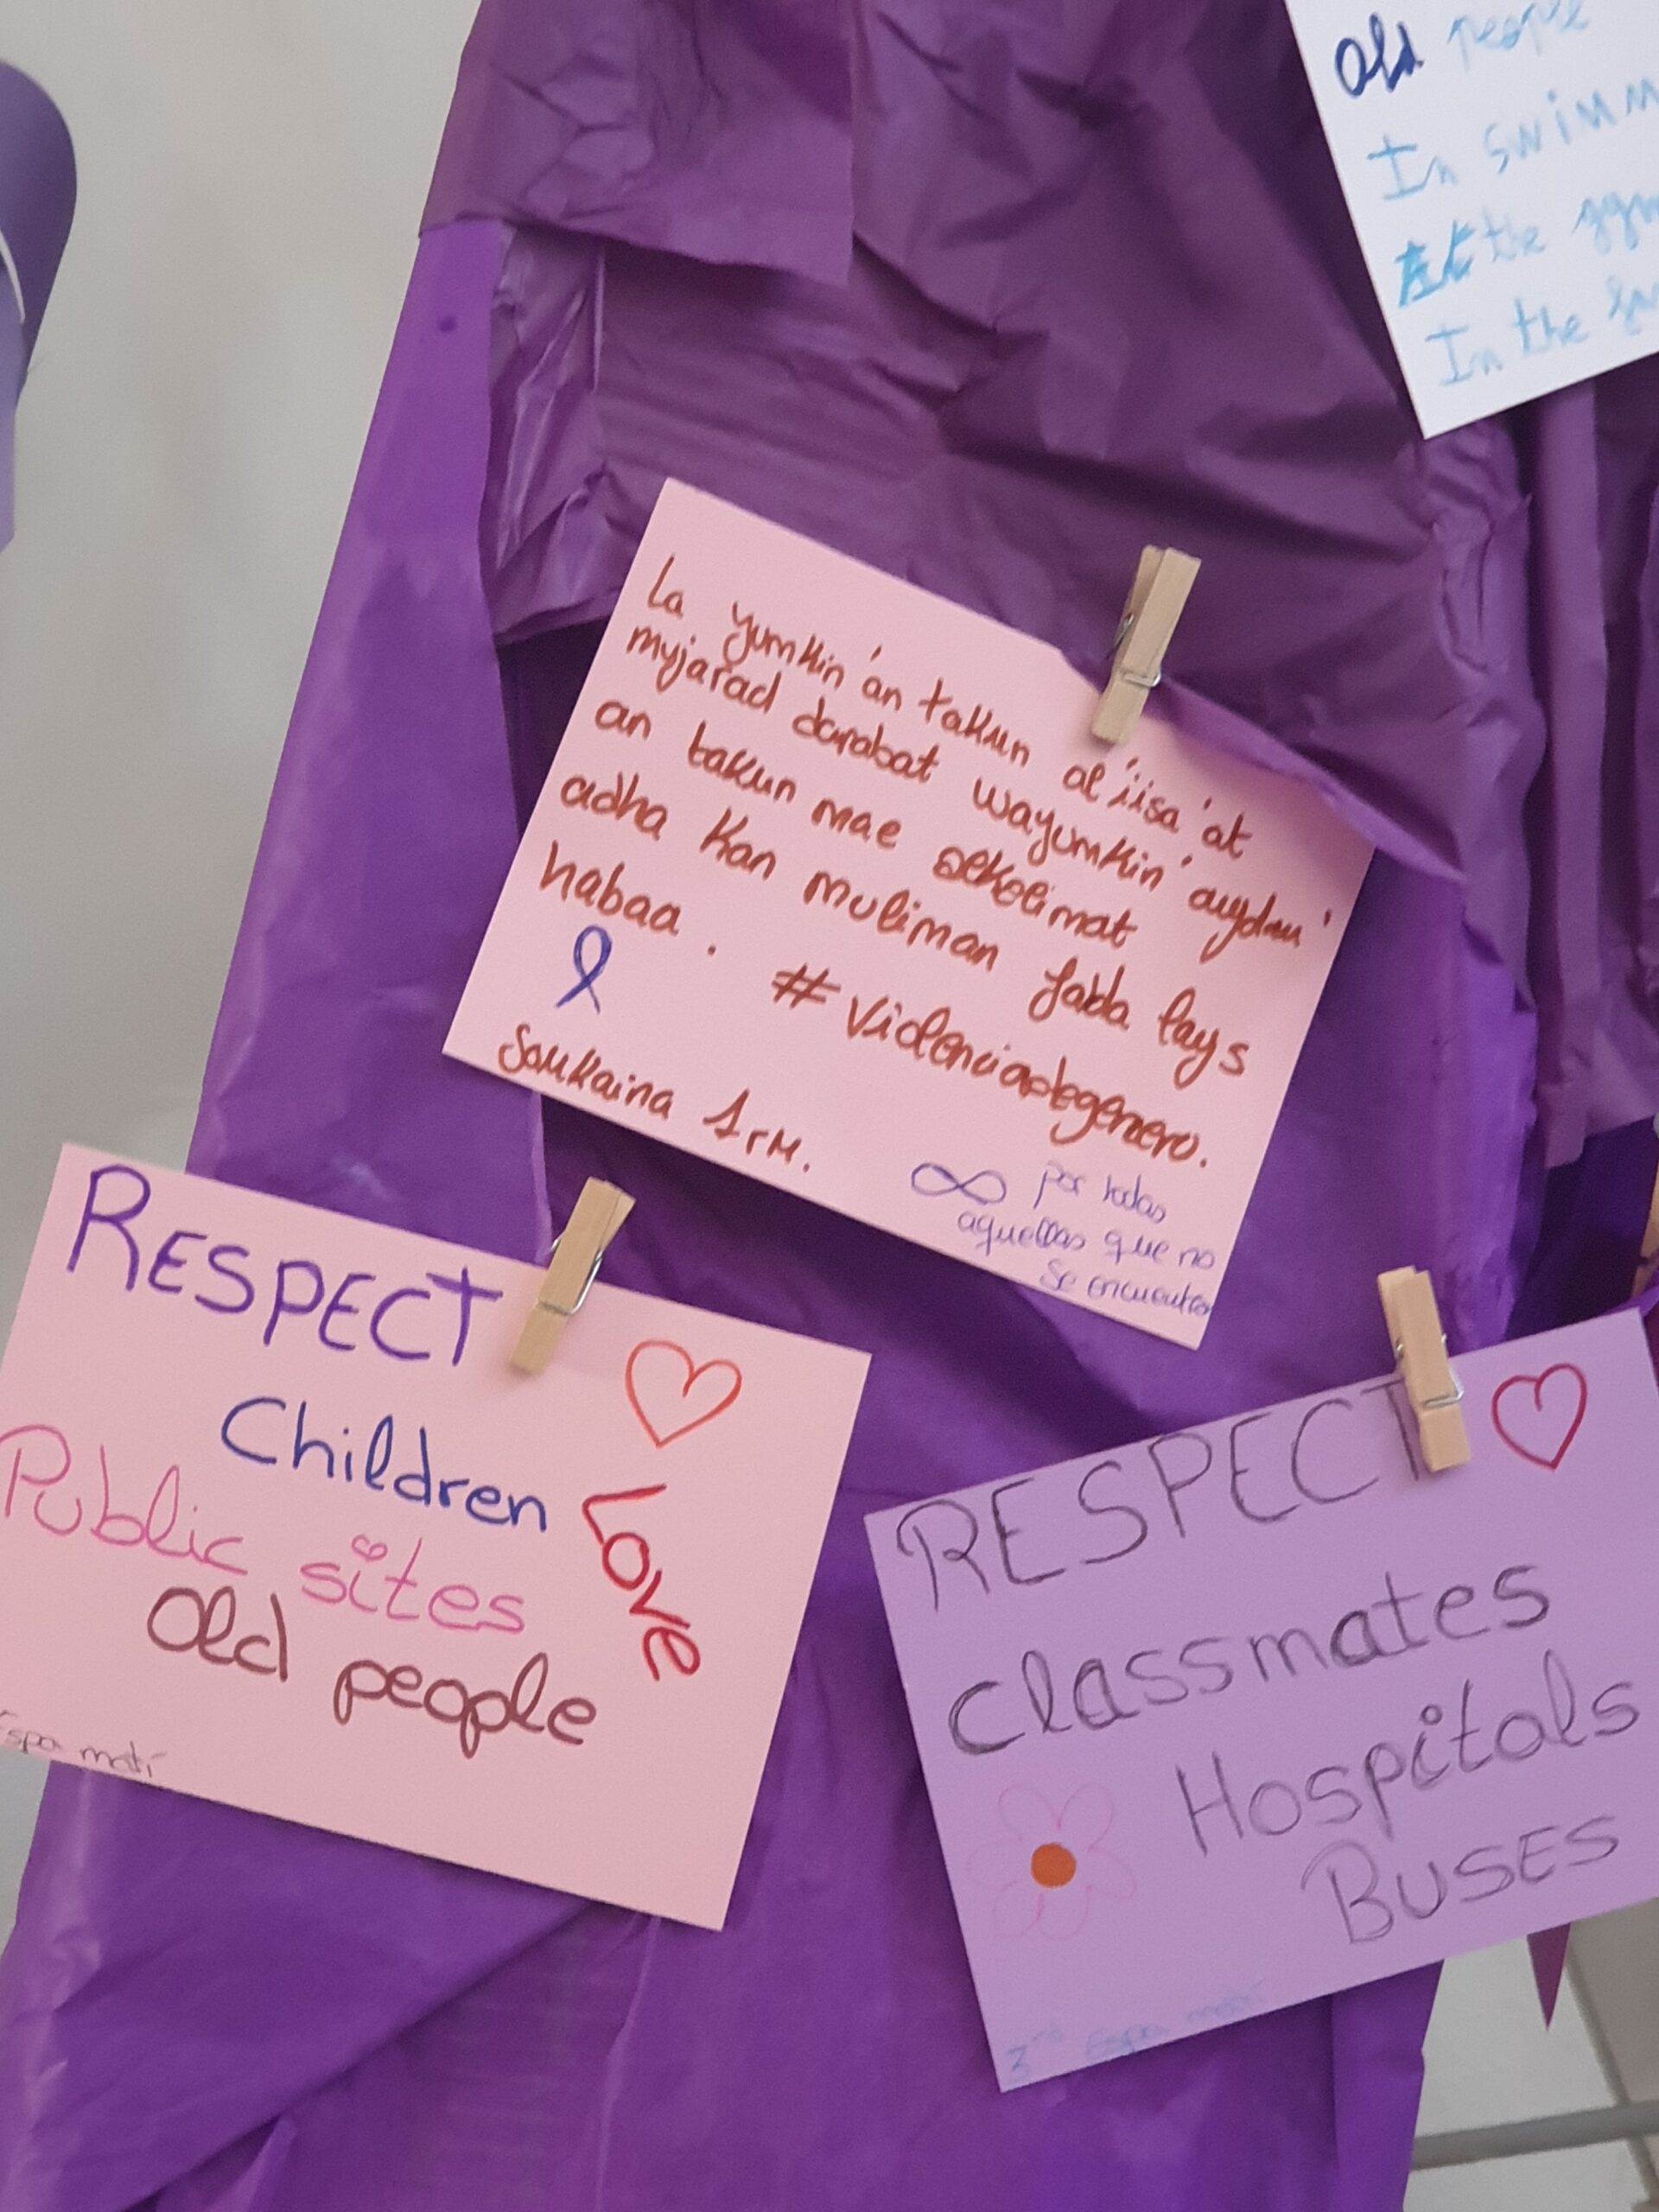 Old people
In swimm
At the gym
In the
La yumkin 'an takun al'iisa'at
myjarad darabat wayumkin 'aydan '
an takun mae alkalimat
adha kan muliman fabda lays
habaa.
#violenciadegenero.
Soukaina 1rM.
∞ por todas
aquellas que no
se encuentran
RESPECT
Children
Public sites
Old people
Love
Espa mati
RESPECT
Classmates
Hospitals
BUSES
3rd Espa mati